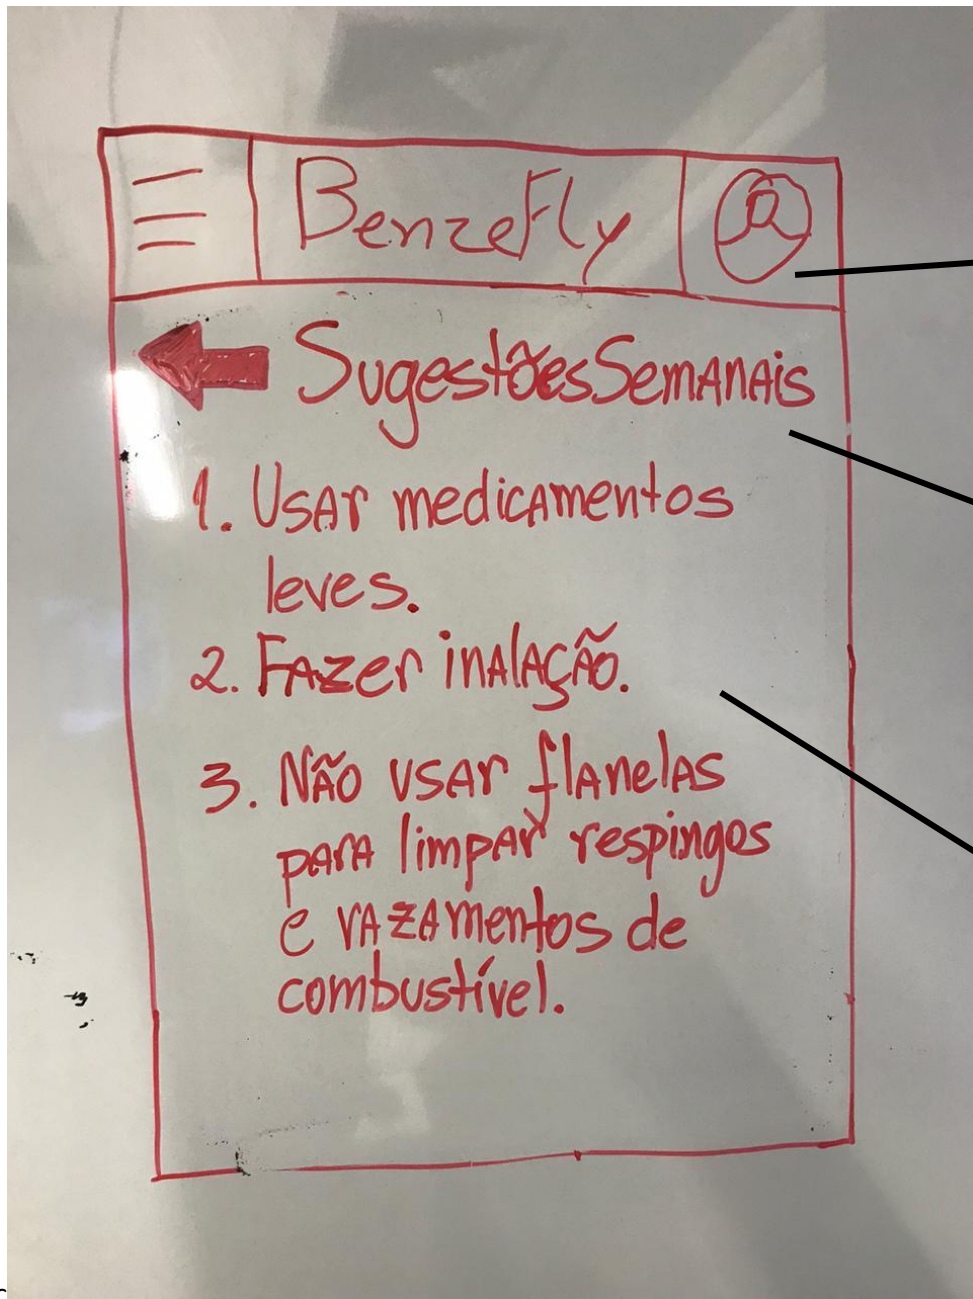 BenzeFly
Sugestões Semanais
1. Usar medicamentos
leves.
2. Fazer inalação.
3. Não usar flanelas
para limpar respingos
e vazamentos de
combustível.